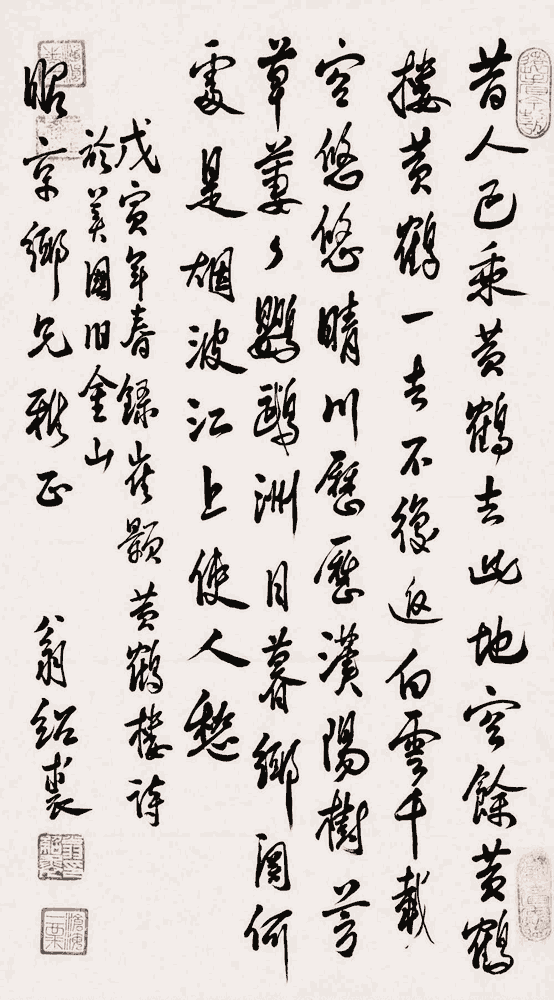 昔人已乘黄鶴去此地空餘黄鶴
樓黄鶴一去不復返白雲千載
空悠悠晴川歷歷漢陽樹芳
草萋々鸚鵡洲日暮鄉関何
處是烟波江上使人愁
戊寅年春録崔顥黄鶴樓詩
於美國旧金山
昭京鄉兄雅正 翁紹裘
滄海一粟